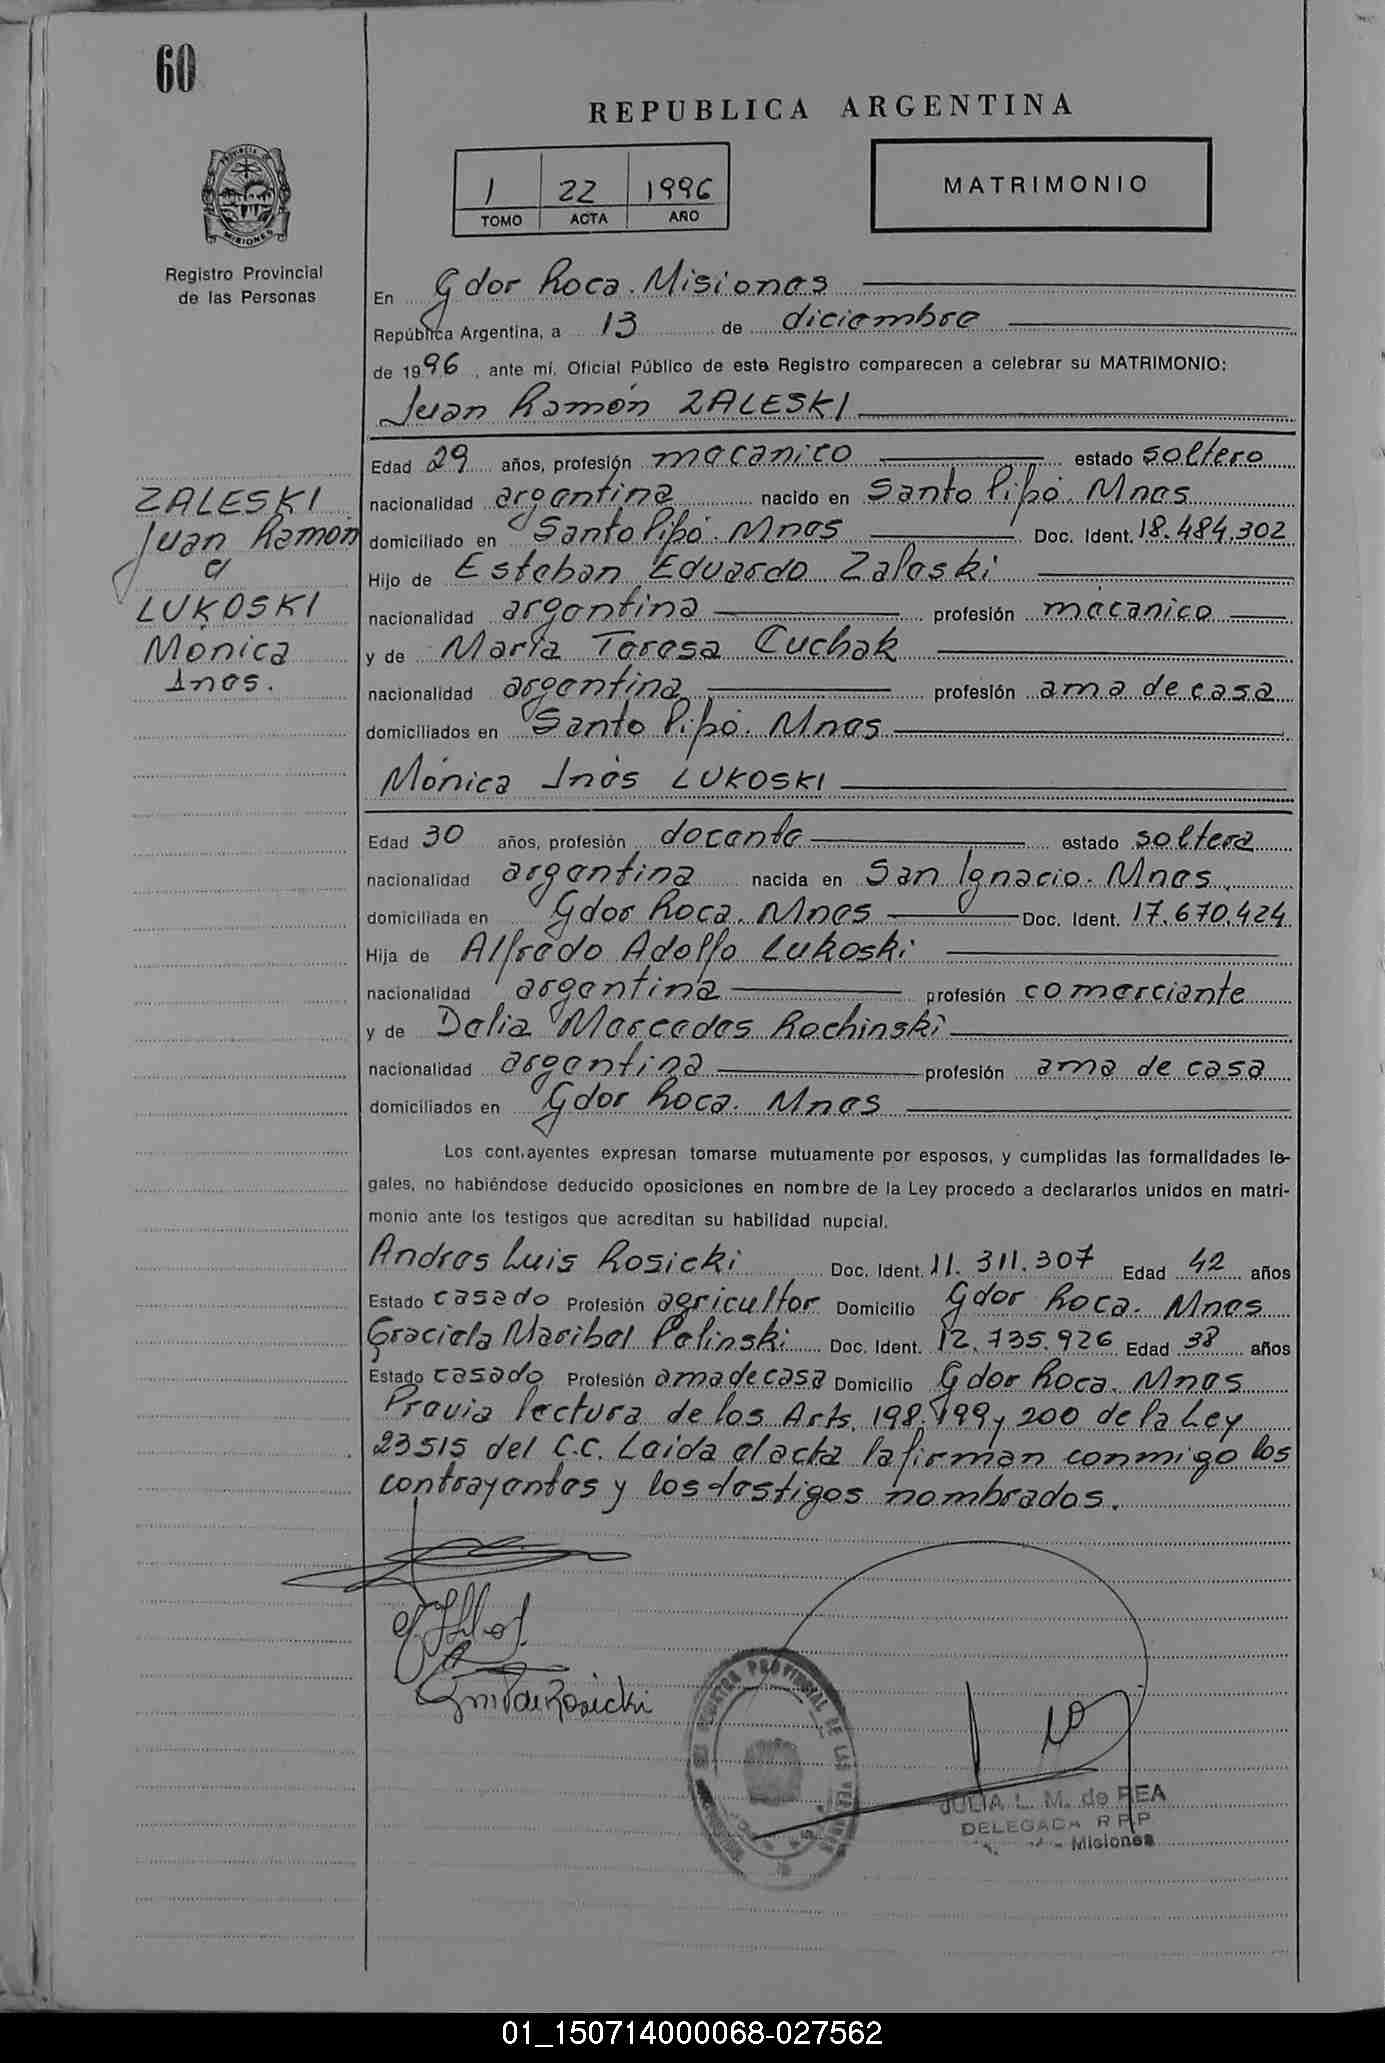 60
REPUBLICA ARGENTINA
1 22 1996
TOMO ACTA AÑO
MATRIMONIO
PROVINCIA DE
MISIONES
Registro Provincial
de las Personas
En Gdor Roca. Misiones
República Argentina, a 13 de diciembre
de 1996, ante mí, Oficial Público de este Registro comparecen a celebrar su MATRIMONIO:
Juan Ramón ZALESKI
Edad 29 años, profesión mecanico estado soltero
nacionalidad argentina nacido en Santo Pipó. Mnes
domiciliado en Santo Pipó. Mnes Doc. Ident. 18.484.302
Hijo de Esteban Eduardo Zaleski
nacionalidad argentina profesión mecanico
y de María Teresa Cuchak
nacionalidad argentina profesión ama de casa
domiciliados en Santo Pipó. Mnes
ZALESKI
Juan Ramón
c/
LUKOSKI
Monica
Ines.
Mónica Inés LUKOSKI
Edad 30 años, profesión docente estado soltera
nacionalidad argentina nacida en San Ignacio. Mnes.
domiciliada en Gdor Roca. Mnes Doc. Ident. 17.670.424
Hija de Alfredo Adolfo Lukoski
nacionalidad argentina profesión comerciante
y de Delia Mercedes Rochinski
nacionalidad argentina profesión ama de casa
domiciliados en Gdor Roca. Mnes
Los cont.ayentes expresan tomarse mutuamente por esposos, y cumplidas las formalidades le-
gales, no habiéndose deducido oposiciones en nombre de la Ley procedo a declararlos unidos en matri-
monio ante los testigos que acreditan su habilidad nupcial.
Andres Luis Rosicki Doc. Ident. 11.311.307 Edad 42 años
Estado casado Profesión agricultor Domicilio Gdor Roca. Mnes
Graciela Maribel Palinski Doc. Ident. 12.735.926 Edad 38 años
Estado casado Profesión ama de casa Domicilio Gdor Roca. Mnes
Previa lectura de los Arts. 198. 199 y 200 de la Ley
23515 del C.C. Leida el acta la firman conmigo los
contrayentes y los testigos nombrados.
de Rosicki
REGISTRO PROVINCIAL DE LAS PERSONAS
JULIA L. M. de REA
DELEGADA R.P.P
Misiones
01_150714000068-027562